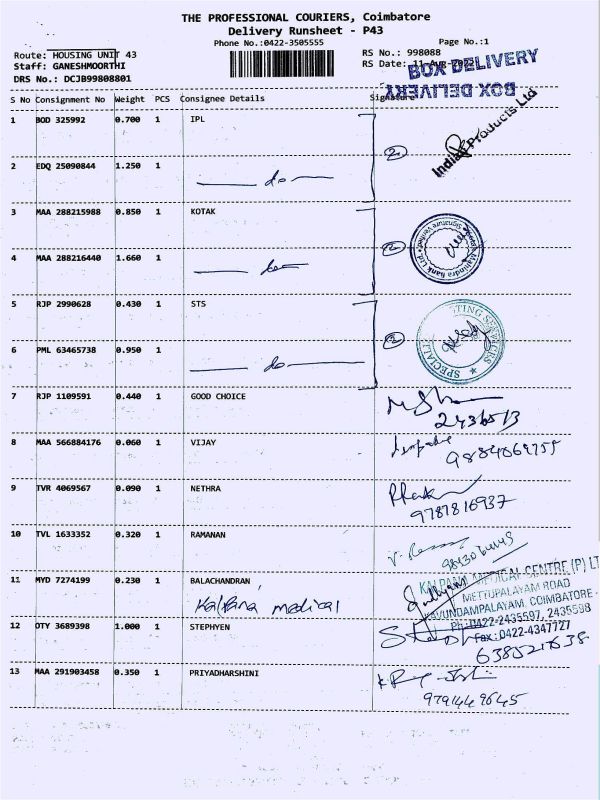 THE PROFESSIONAL COURIERS, Coimbatore
Delivery Runsheet - P43
Phone No.:0422-3505555
Page No.:1
Route: HOUSING UNIT 43
RS No.: 998088
Staff: GANESHMOORTHI
RS Date: 11-Aug-2022
DRS No.: DCJB99808801
BOX DELIVERY
BOX DELIVERY
S No Consignment No Weight PCS Consignee Details Signature
1 BOD 325992 0.700 1 IPL
2
Indian Products Ltd
2 EDQ 25090844 1.250 1 do
3 MAA 288215988 0.850 1 KOTAK
2
Mahindra Bank Ltd.
Signature Verified
4 MAA 288216440 1.660 1
5 RJP 2990628 0.430 1 STS
2
6 PML 63465738 0.950 1 do
7 RJP 1109591 0.440 1 GOOD CHOICE
2436513
8 MAA 566884176 0.060 1 VIJAY
9884069755
9 TVR 4069567 0.090 1 NETHRA
9787816937
10 TVL 1633352 0.320 1 RAMANAN
11 MYD 7274199 0.230 1 BALACHANDRAN
Kalpana medical
KALPANA MEDICAL CENTRE (P) LT
METTUPALAYAM ROAD
KAVUNDAMPALAYAM, COIMBATORE -
Ph:0422-2435597, 2435598
Fax:0422-4347727
12 OTY 3689398 1.000 1 STEPHYEN
6385221638
13 MAA 291903458 0.350 1 PRIYADHARSHINI
9791449645